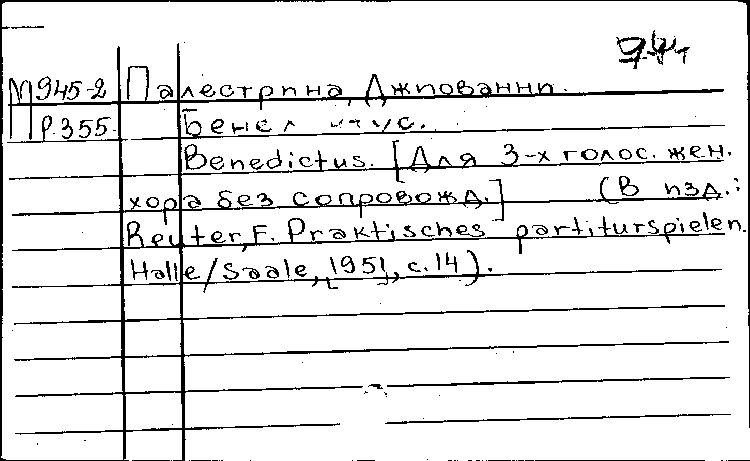 М945-2 Палестрина, Джиованни.
П р.355.
Benedictus. [Для 3-х голос. жен.
хора без сопровожд.] (В изд.:
Reuter, F. Praktisches partiturspielen.
Halle/Saale, [1951], с.14).